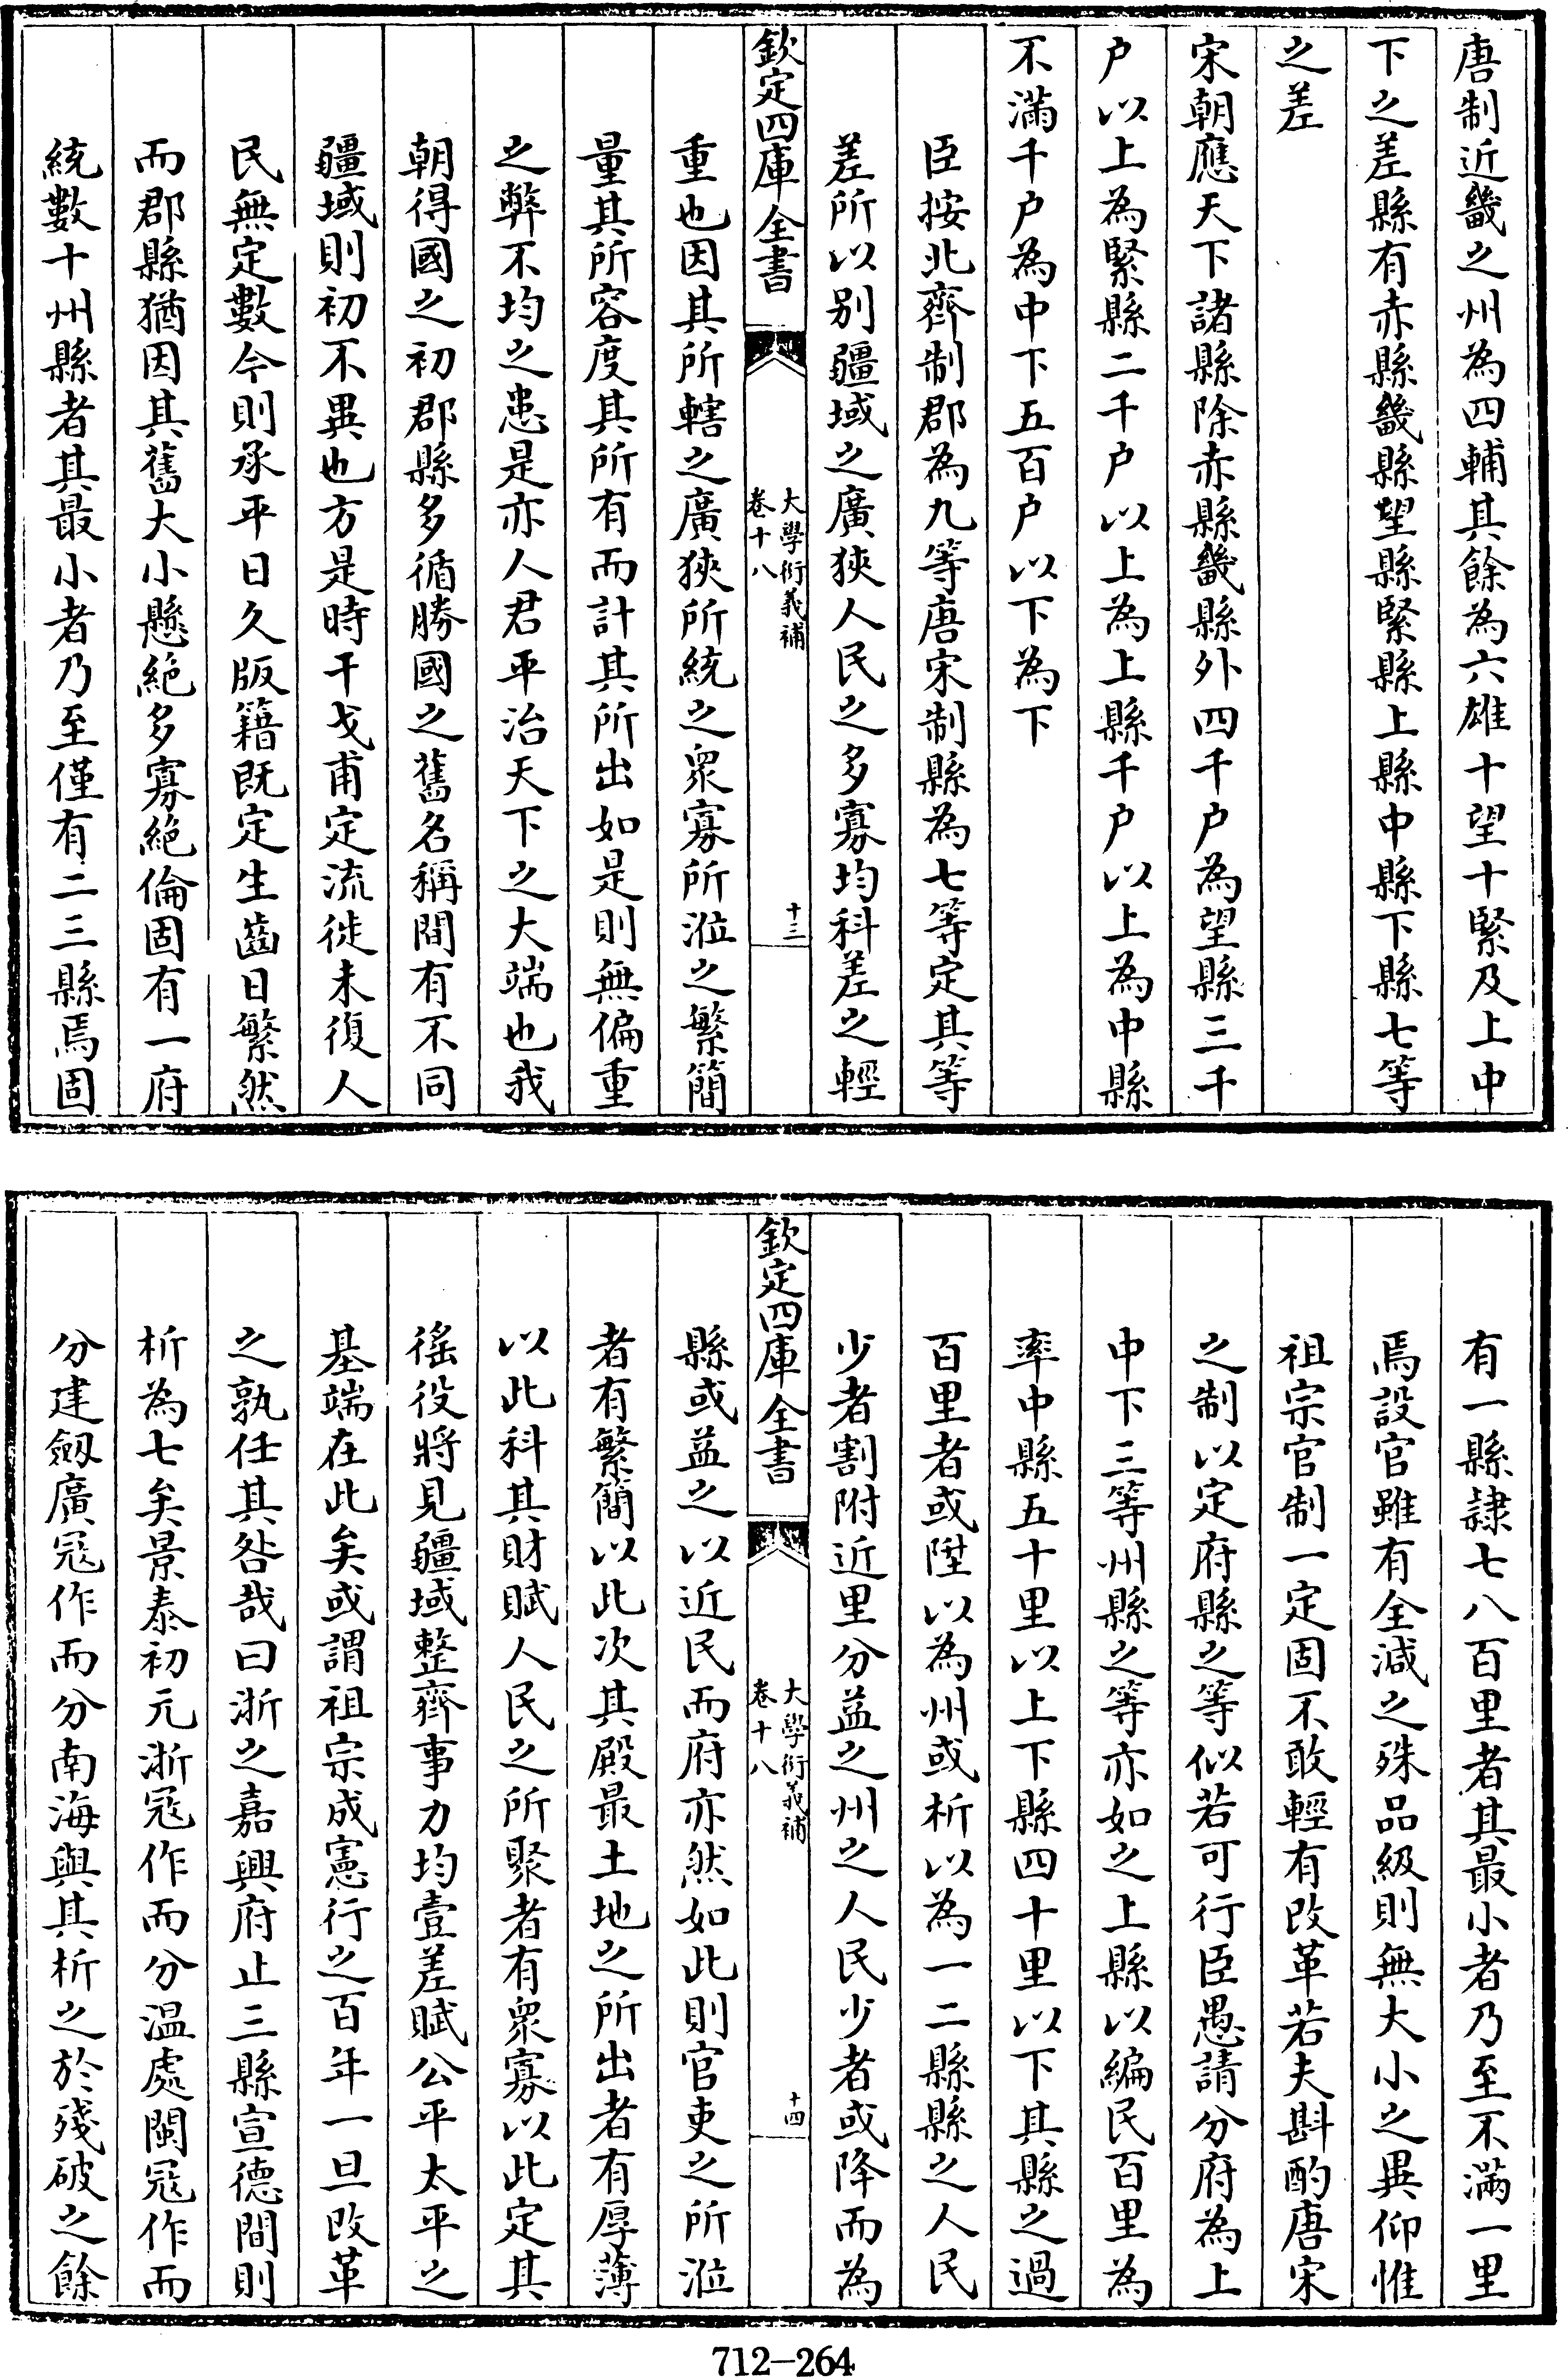 唐制近畿之州為四輔其餘為六雄十望十緊及上中
下之差縣有赤縣畿縣望縣緊縣上縣中縣下縣七等
之差
宋朝應天下諸縣除赤縣畿縣外四千户為望縣三千
户以上為緊縣二千户以上為上縣千户以上為中縣
不滿千户為中下五百户以下為下
臣按北齊制郡為九等唐宋制縣為七等定其等
差所以别疆域之廣狹人民之多寡均科差之輕
欽定四庫全書
大學衍義補
卷十八
十三
重也因其所轄之廣狹所統之眾寡所涖之繁簡
量其所容度其所有而計其所出如是則無偏重
之弊不均之患是亦人君平治天下之大端也我
朝得國之初郡縣多循勝國之舊名稱間有不同
疆域則初不異也方是時干戈甫定流徙未復人
民無定數今則承平日久版籍既定生齒日繁然
而郡縣猶因其舊大小懸絶多寡絶倫固有一府
統數十州縣者其最小者乃至僅有二三縣焉固
有一縣隷七八百里者其最小者乃至不滿一里
焉設官雖有全減之殊品級則無大小之異仰惟
祖宗官制一定固不敢輕有改革若夫斟酌唐宋
之制以定府縣之等似若可行臣愚請分府為上
中下三等州縣之等亦如之上縣以編民百里為
率中縣五十里以上下縣四十里以下其縣之過
百里者或陞以為州或析以為一二縣縣之人民
少者割附近里分益之州之人民少者或降而為
欽定四庫全書
大學衍義補
卷十八
十四
縣或益之以近民而府亦然如此則官吏之所涖
者有繁簡以此次其殿最土地之所出者有厚薄
以此科其財賦人民之所聚者有眾寡以此定其
徭役將見疆域整齊事力均壹差賦公平太平之
基端在此矣或謂祖宗成憲行之百年一旦改革
之孰任其咎哉曰浙之嘉興府止三縣宣德間則
析為七矣景泰初元浙冦作而分温處閩冦作而
分建劒廣冦作而分南海與其析之於殘破之餘
712-264